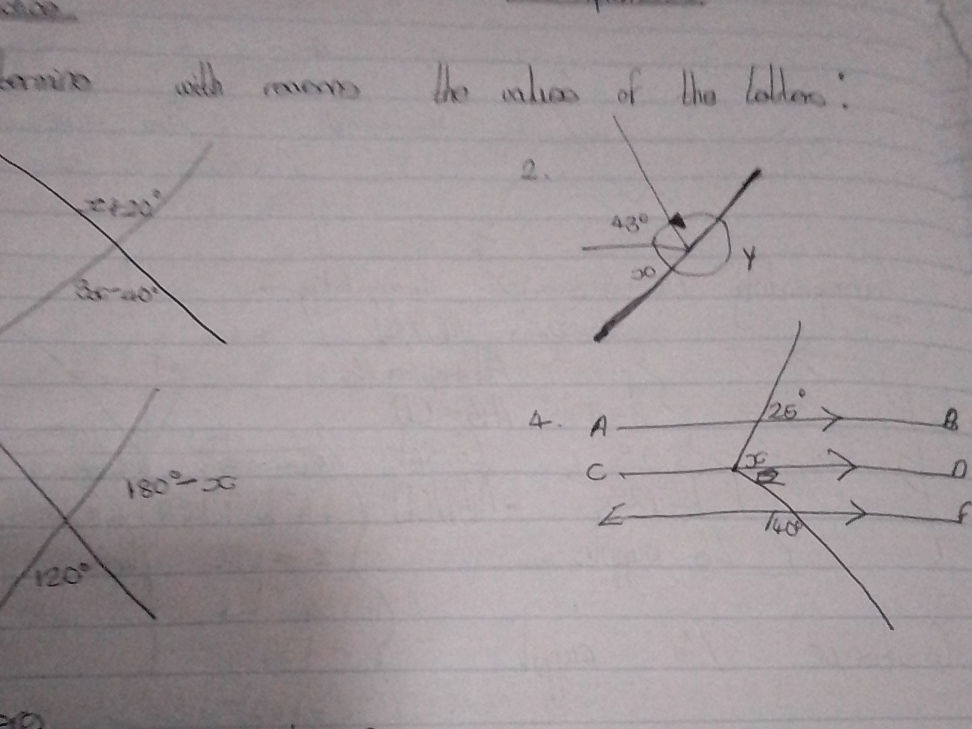 with reasons the values of the letters:
2.
x+20°
43°
3x-40°
x
y
4.
25°
A
B
x
C
D
180°-x
E
F
140°
120°